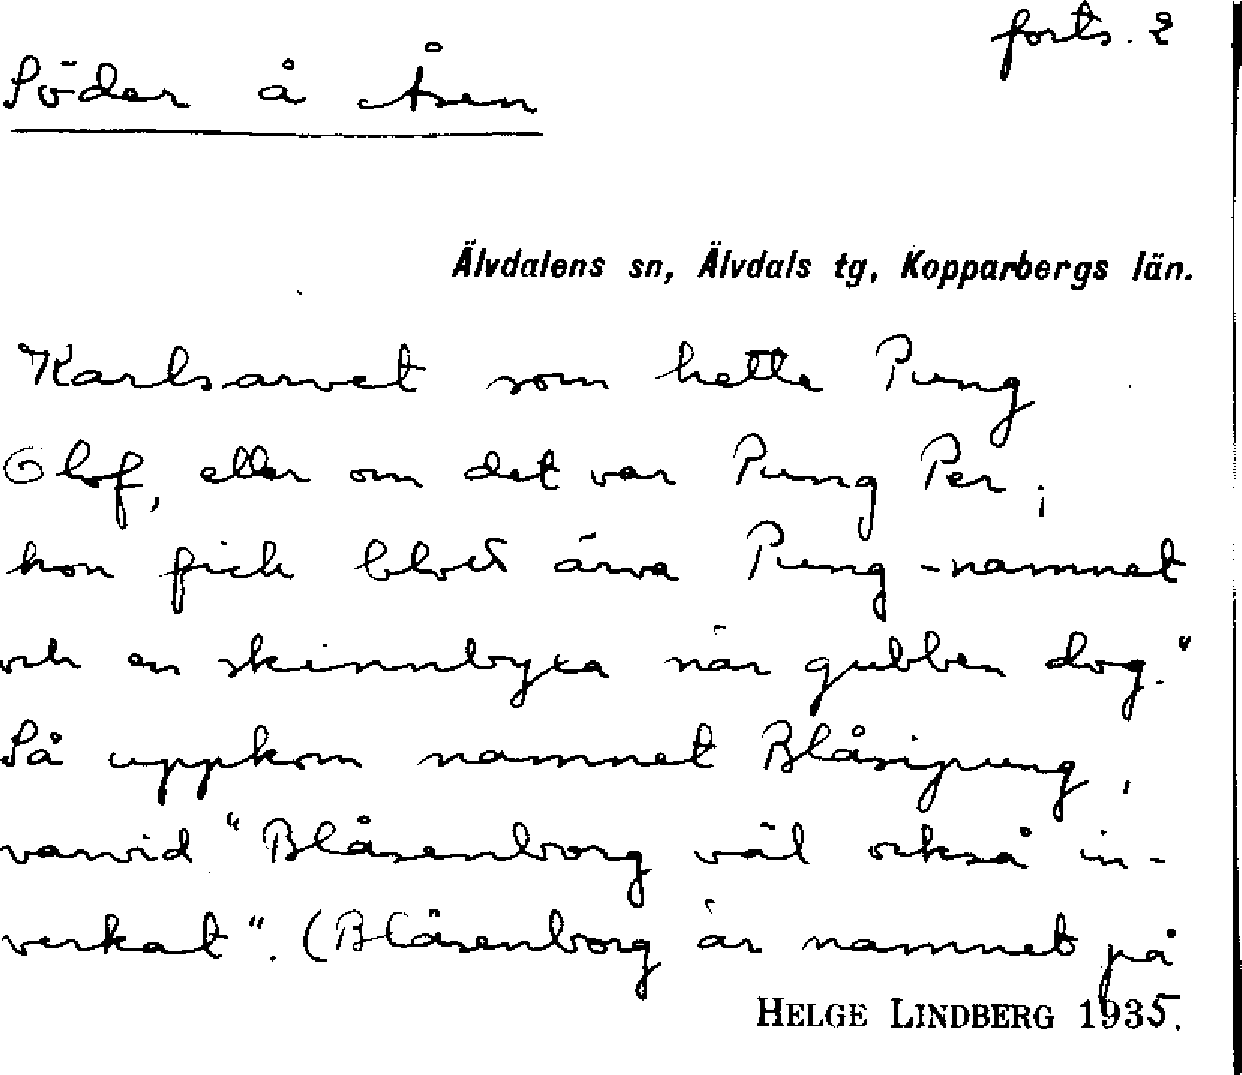 forts. 2
Söder å Åsen
Älvdalens sn, Älvdals tg, Kopparbergs län.
Karlsarvet som hette Pung
Olof, eller om det var Pung Per;
hon fick blott ärva Pung-namnet
och en skinnbyxa när gubben dog."
Så uppkom namnet Blåsipung,
varvid "Blåsenborg väl också in-
verkat". (Blåsenborg är namnet på
HELGE LINDBERG 1935.